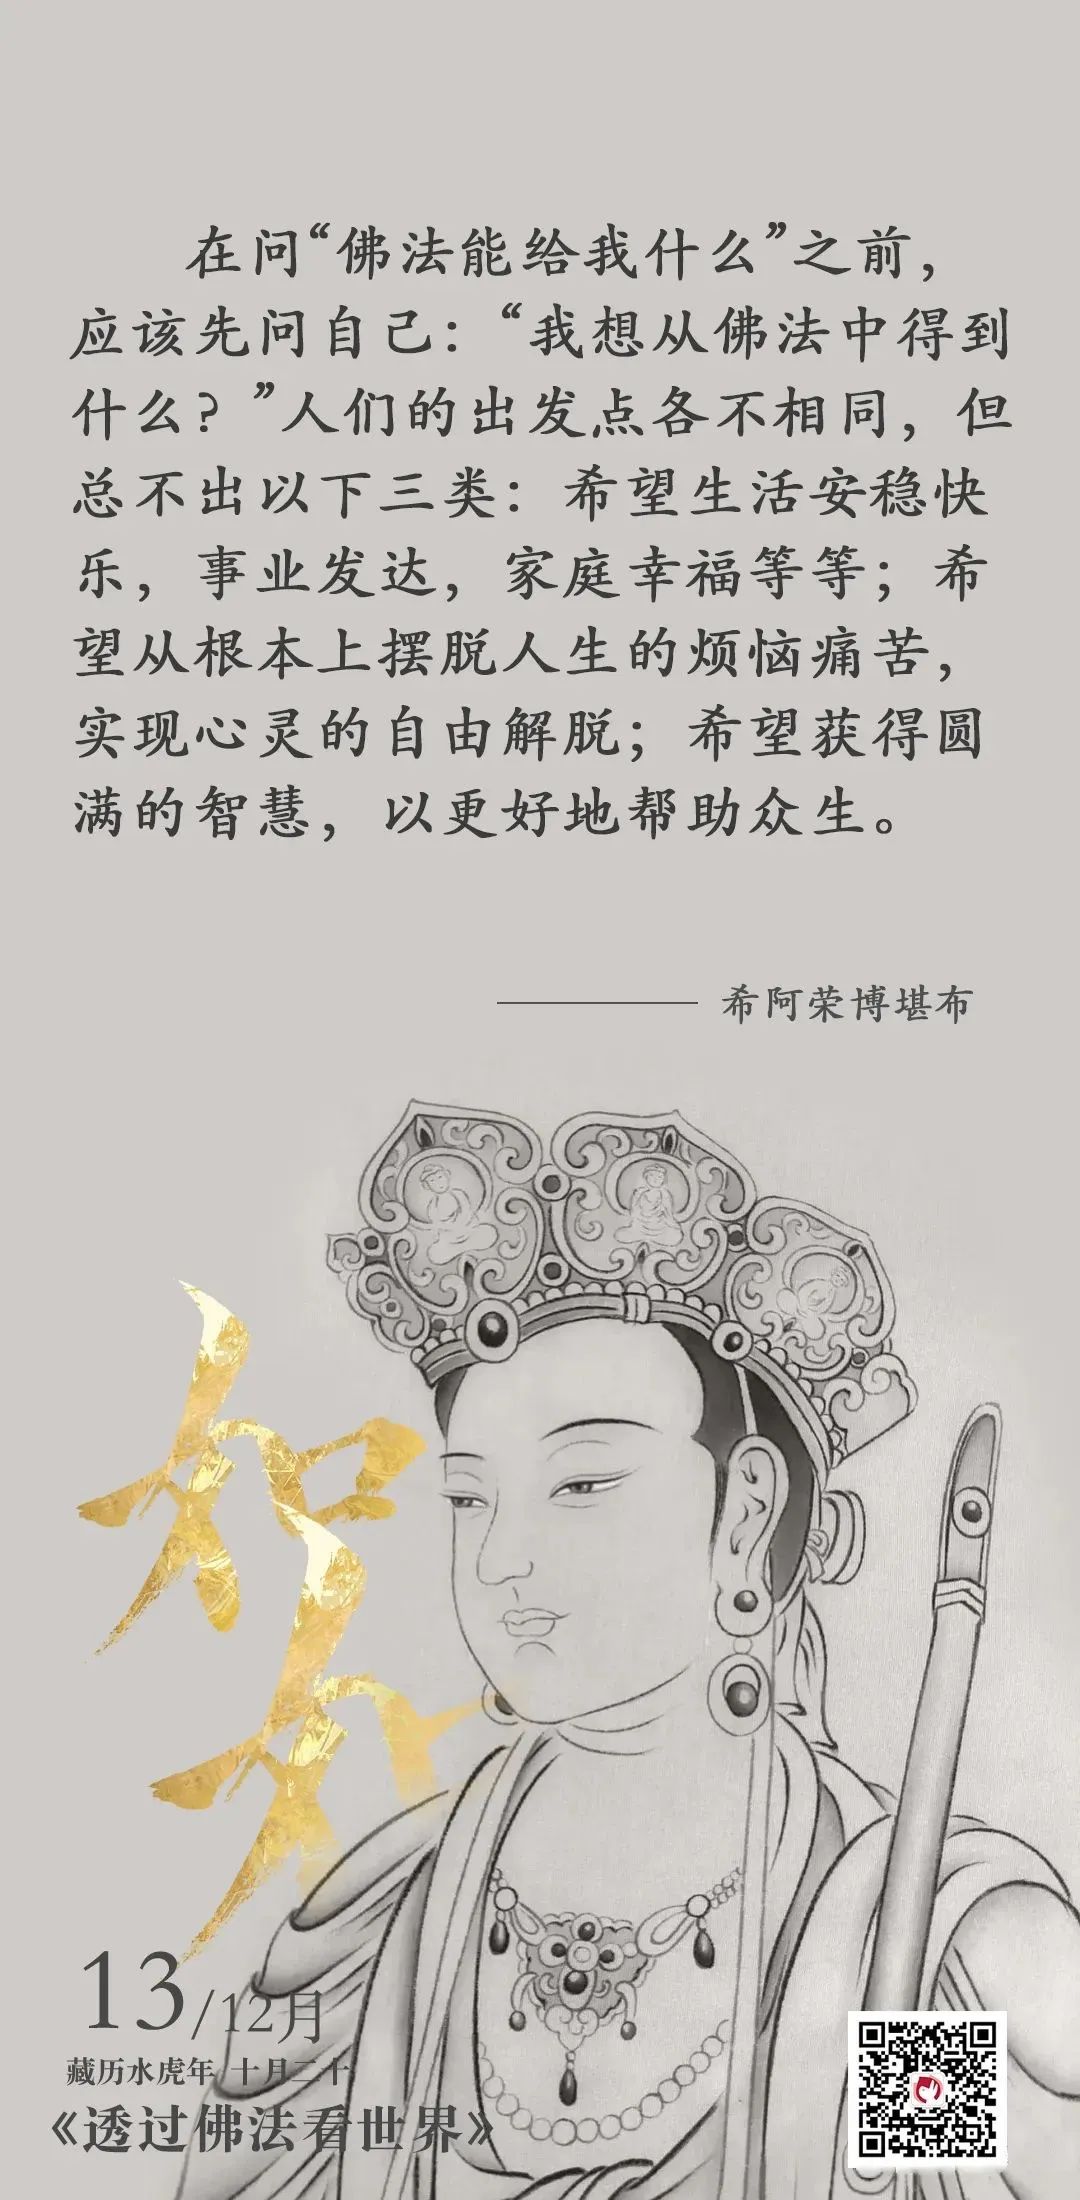 在问“佛法能给我什么”之前，
应该先问自己：“我想从佛法中得到
什么？”人们的出发点各不相同，但
总不出以下三类：希望生活安稳快
乐，事业发达，家庭幸福等等；希
望从根本上摆脱人生的烦恼痛苦，
实现心灵的自由解脱；希望获得圆
满的智慧，以更好地帮助众生。
——希阿荣博堪布
如
13/12月
藏历水虎年 十月二十
《透过佛法看世界》